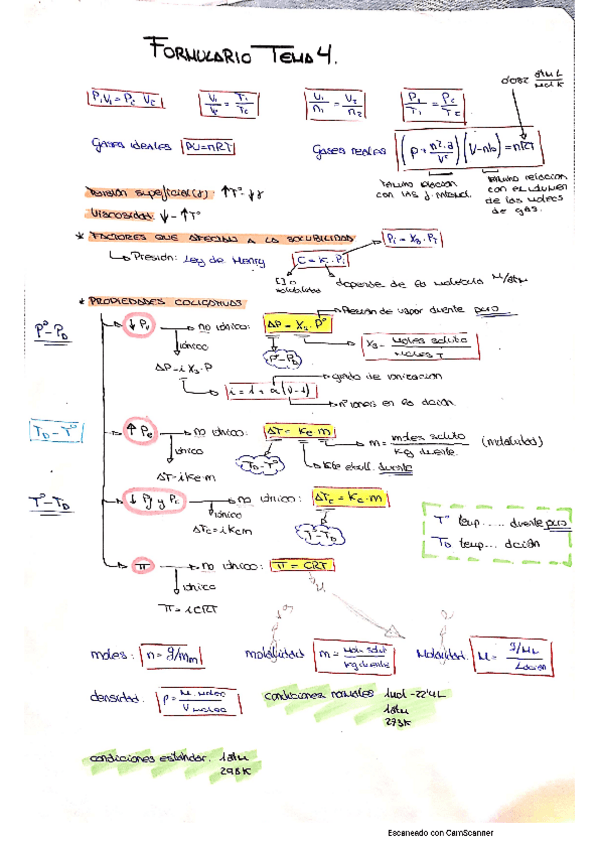 FORMULARIO TEMA 4.
P₁V₁ = P₂ V₂
V₁/V₂ = T₁/T₂
V₁/n₁ = V₂/n₂
P₁/T₁ = P₂/T₂
0'082 atm L/mol K
Gases ideales PV=nRT
Gases reales (P + n²·a/V²)(V-nb) = nRT
término relación con las f. intermol.
término relación con el volumen de las moléc de gas.
Tensión superficial(γ): ↑Tª-↓γ
Viscosidad ↓-↑Tª
* FACTORES QUE AFECTAN A LA SOLUBILIDAD
Pi = Xi·PT
Presión: Ley de Henry C = K·Pi
[ ] o solubilidad
depende de la molécula M/atm
* PROPIEDADES COLIGATIVAS
Pº-PD
↓ Pv
no iónico: ΔP = Xs·Pº
Presión de vapor dvente puro
iónico
Pº-PD
Xs = moles soluto/moles T
ΔP=i Xs·P
i = 1 + α(ν-1)
grado de ionización
nº iones en la dción.
TD-Tº
↑ Pe
no iónico: ΔT = Ke·m
m = moles soluto/kg dvente. (molalidad)
iónico
TD-Tº
cte ebull. dvente
ΔT=iKe·m
Tº-TD
↓ Pf y Pc
no iónico: ΔTc = Kc·m
iónico
ΔTc=iKcm
Tº-TD
Tº temp...... dvente puro
TD temp... dción
π
no iónico: π = CRT
iónico
M
π=iCRT
moles: n = g/Mm
molalidad m = mol solut/kg dvente
Molaridad. M = g/Mm/L dción
densidad. ρ = M. molec/V molec
condiciones normales 1mol-22'4L
1atm
273K
condiciones estándar. 1atm
298K
Escaneado con CamScanner